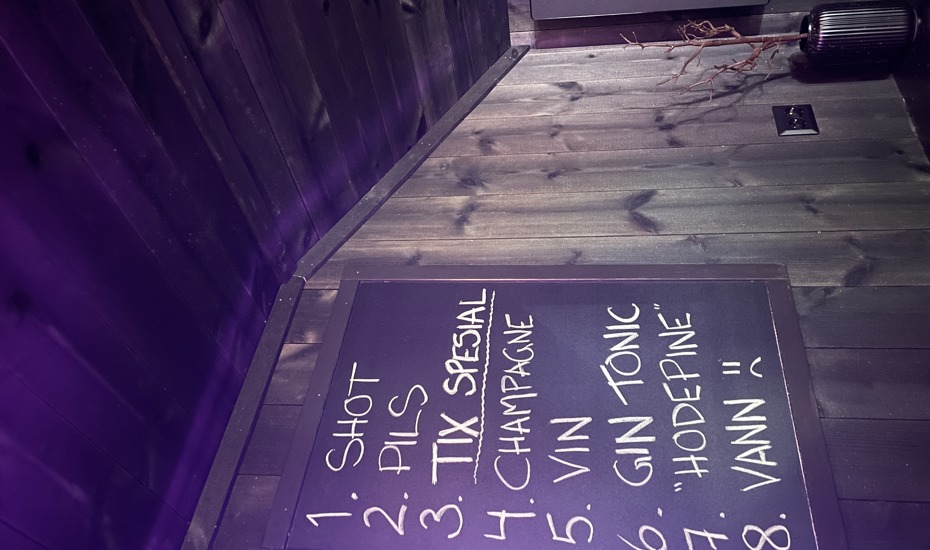 1. SHOT
2. PILS
3. TIX SPESIAL
4. CHAMPAGNE
5. VIN
6. GIN TONIC
7. "HODEPINE"
8. VANN :(